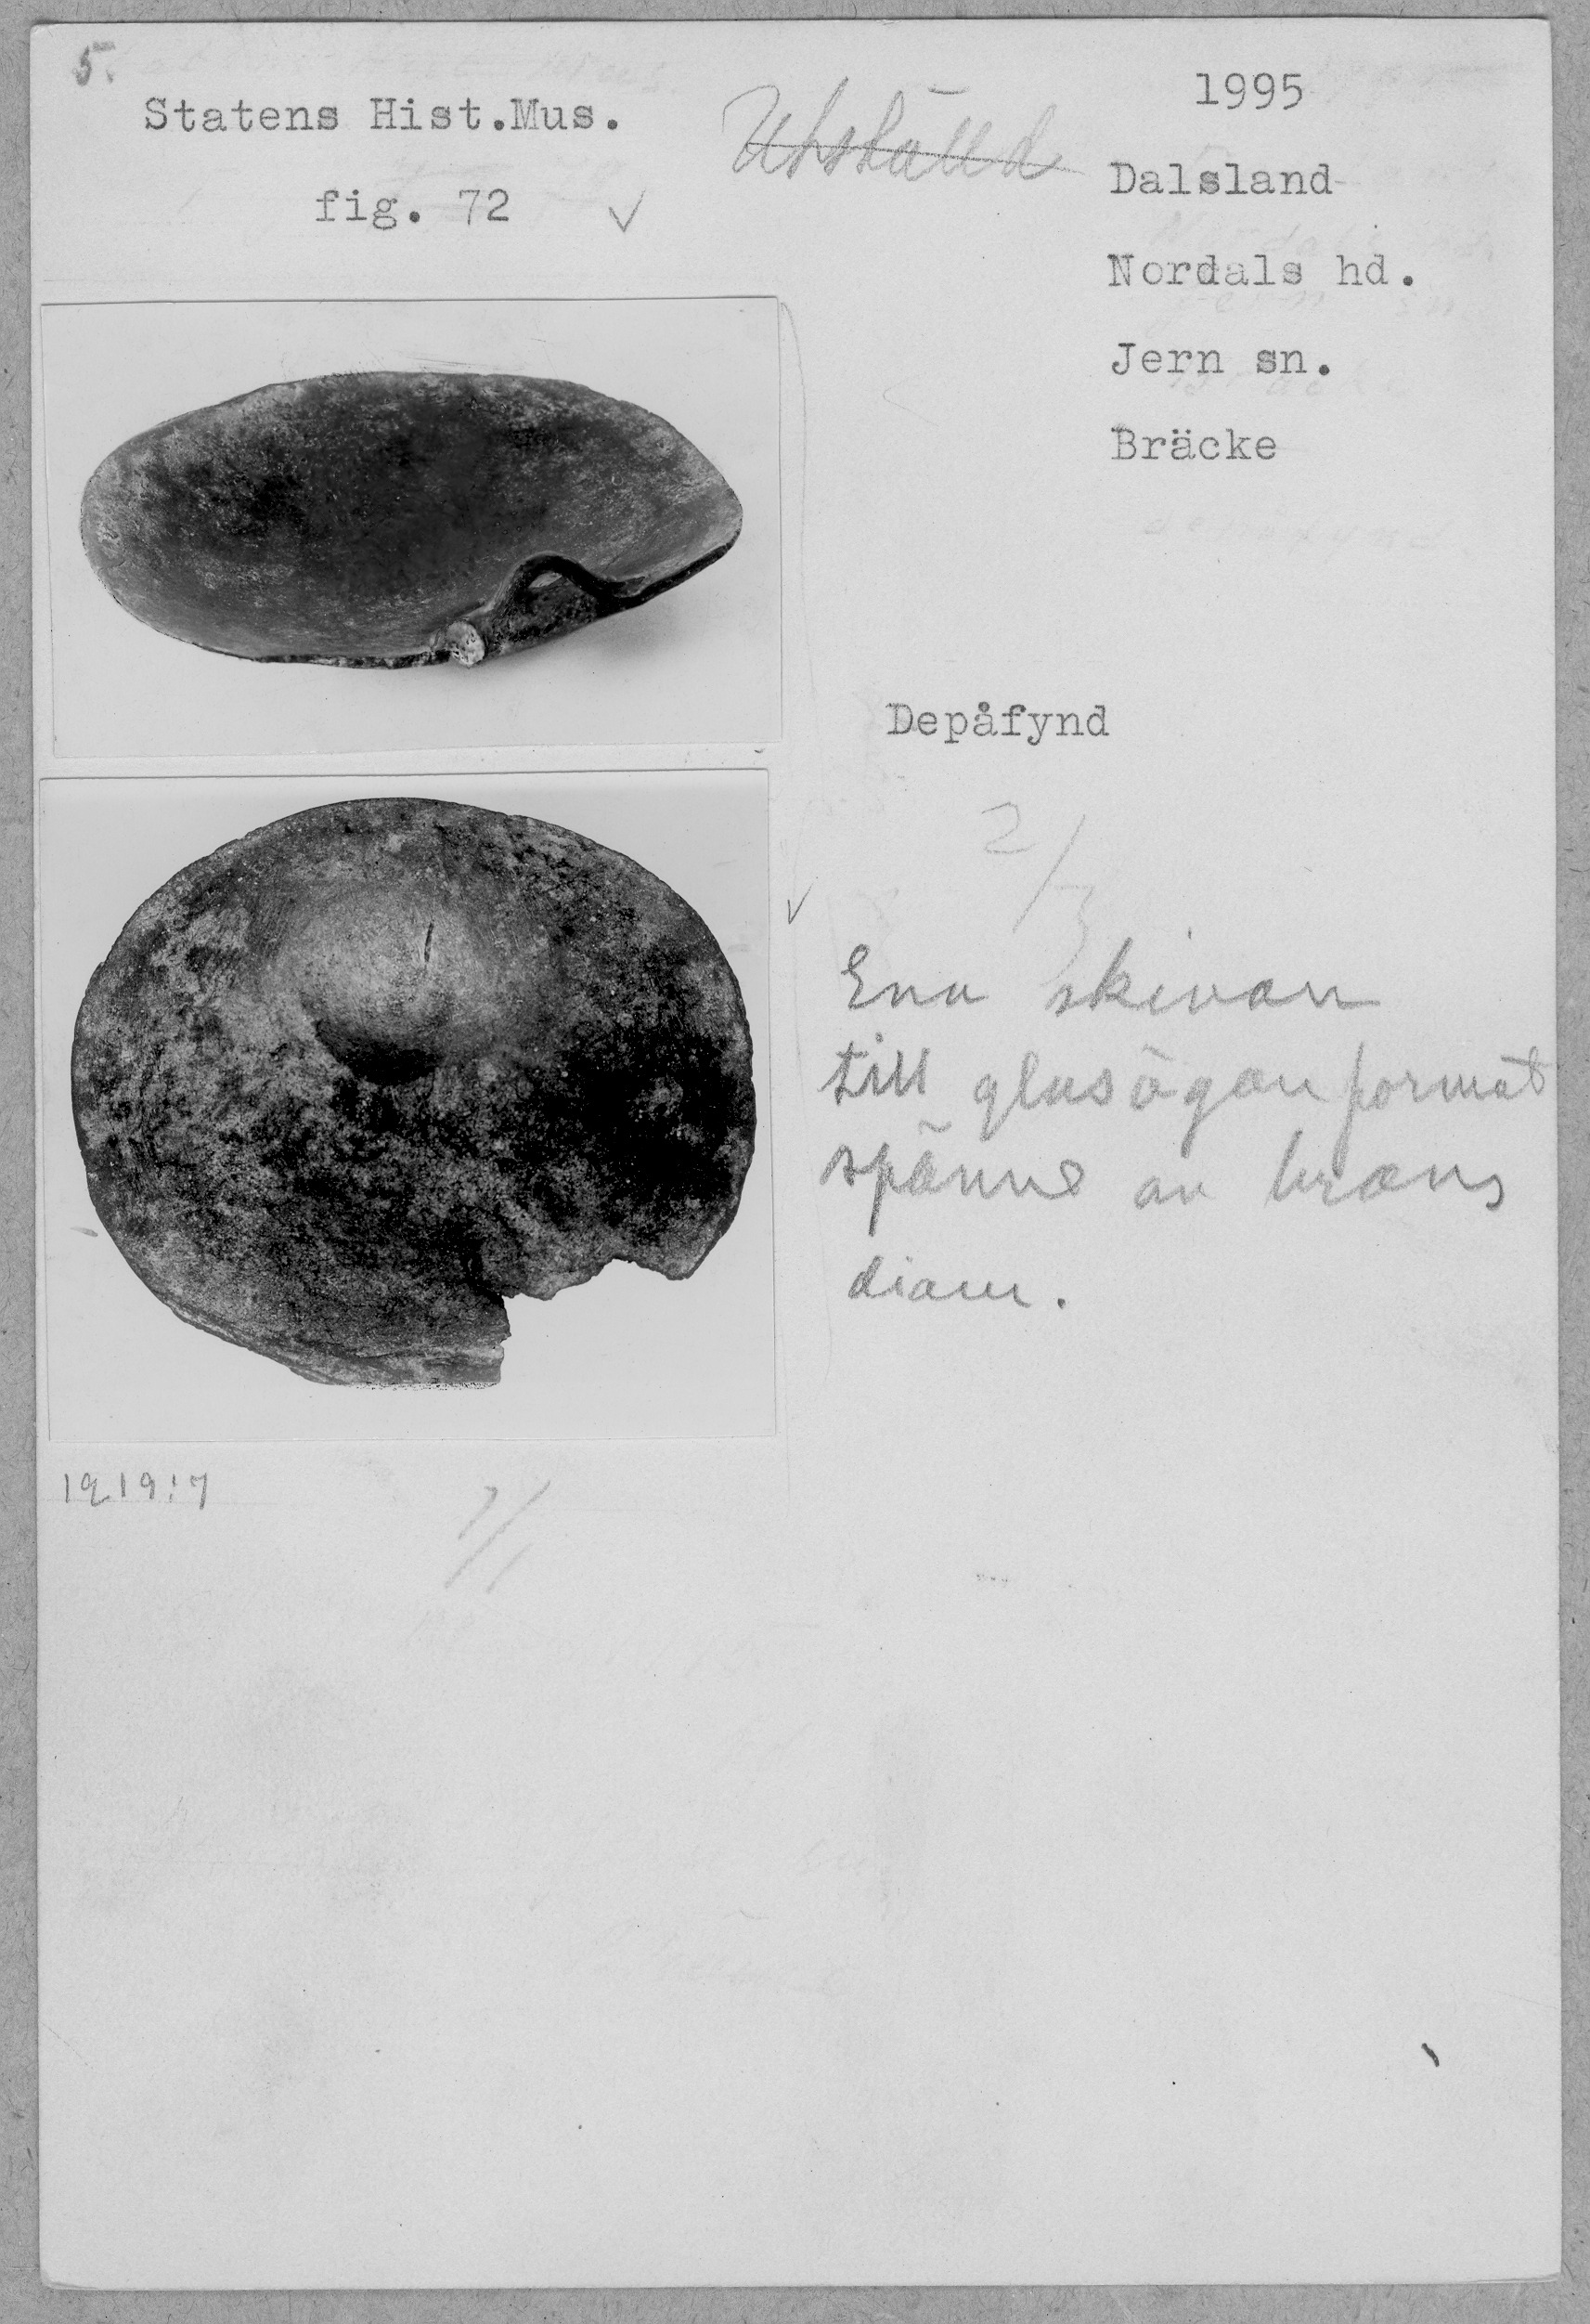 5.
Statens Hist.Mus.
fig. 72
Utställd
1995
Dalsland
Nordals hd.
Jern sn.
Bräcke
Depåfynd
2/3
Ena skivan
till glasögonformat
spänne av brons
diam.
1/1